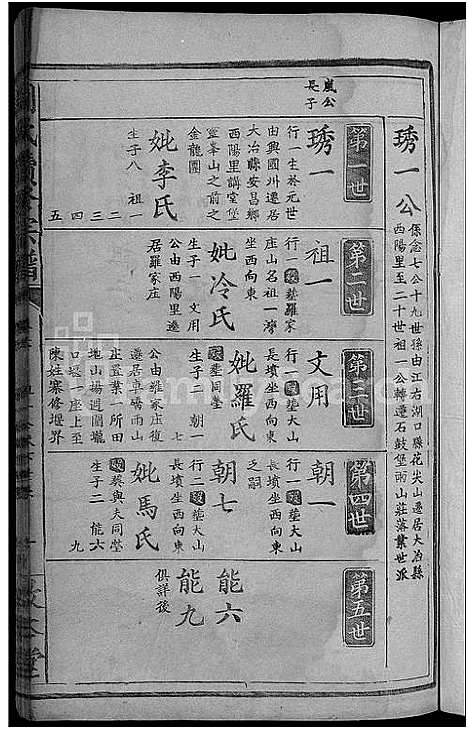 琇一公
係念七公十九世孫由江右湖口縣花尖山遷居大冶縣
西陽里至二十世祖一公轉遷石鼓堡雨山莊落業世派
第一世
嵐公
長子
琇一
行一生於元世
由興國川遷居
大冶縣安昌鄉
西陽里講堂堡
靈峯山之前之
金龍團
妣李氏
生子八 祖一
二
三
四
五
第二世
祖一
行一歿塟羅家
庄山名祖一灣
坐西向東
妣冷氏
生子一 文用
公由西陽里遷
居羅家庄
第三世
文用
行一歿塟大山
長墳坐西向東
妣羅氏
歿塟同塋
生子二 朝一
七
公由羅家庄復
遷居卓磗雨山
正置業一所田
地山場週圍壠
口塆座上至
陳姓寨修堰界
第四世
朝一
行一歿塟大山
長墳坐西向東
乏嗣
朝七
行二歿塟大山
長墳坐西向東
妣馬氏
歿葵與夫同塋
生子二 能六
九
第五世
能六
能九
俱詳後